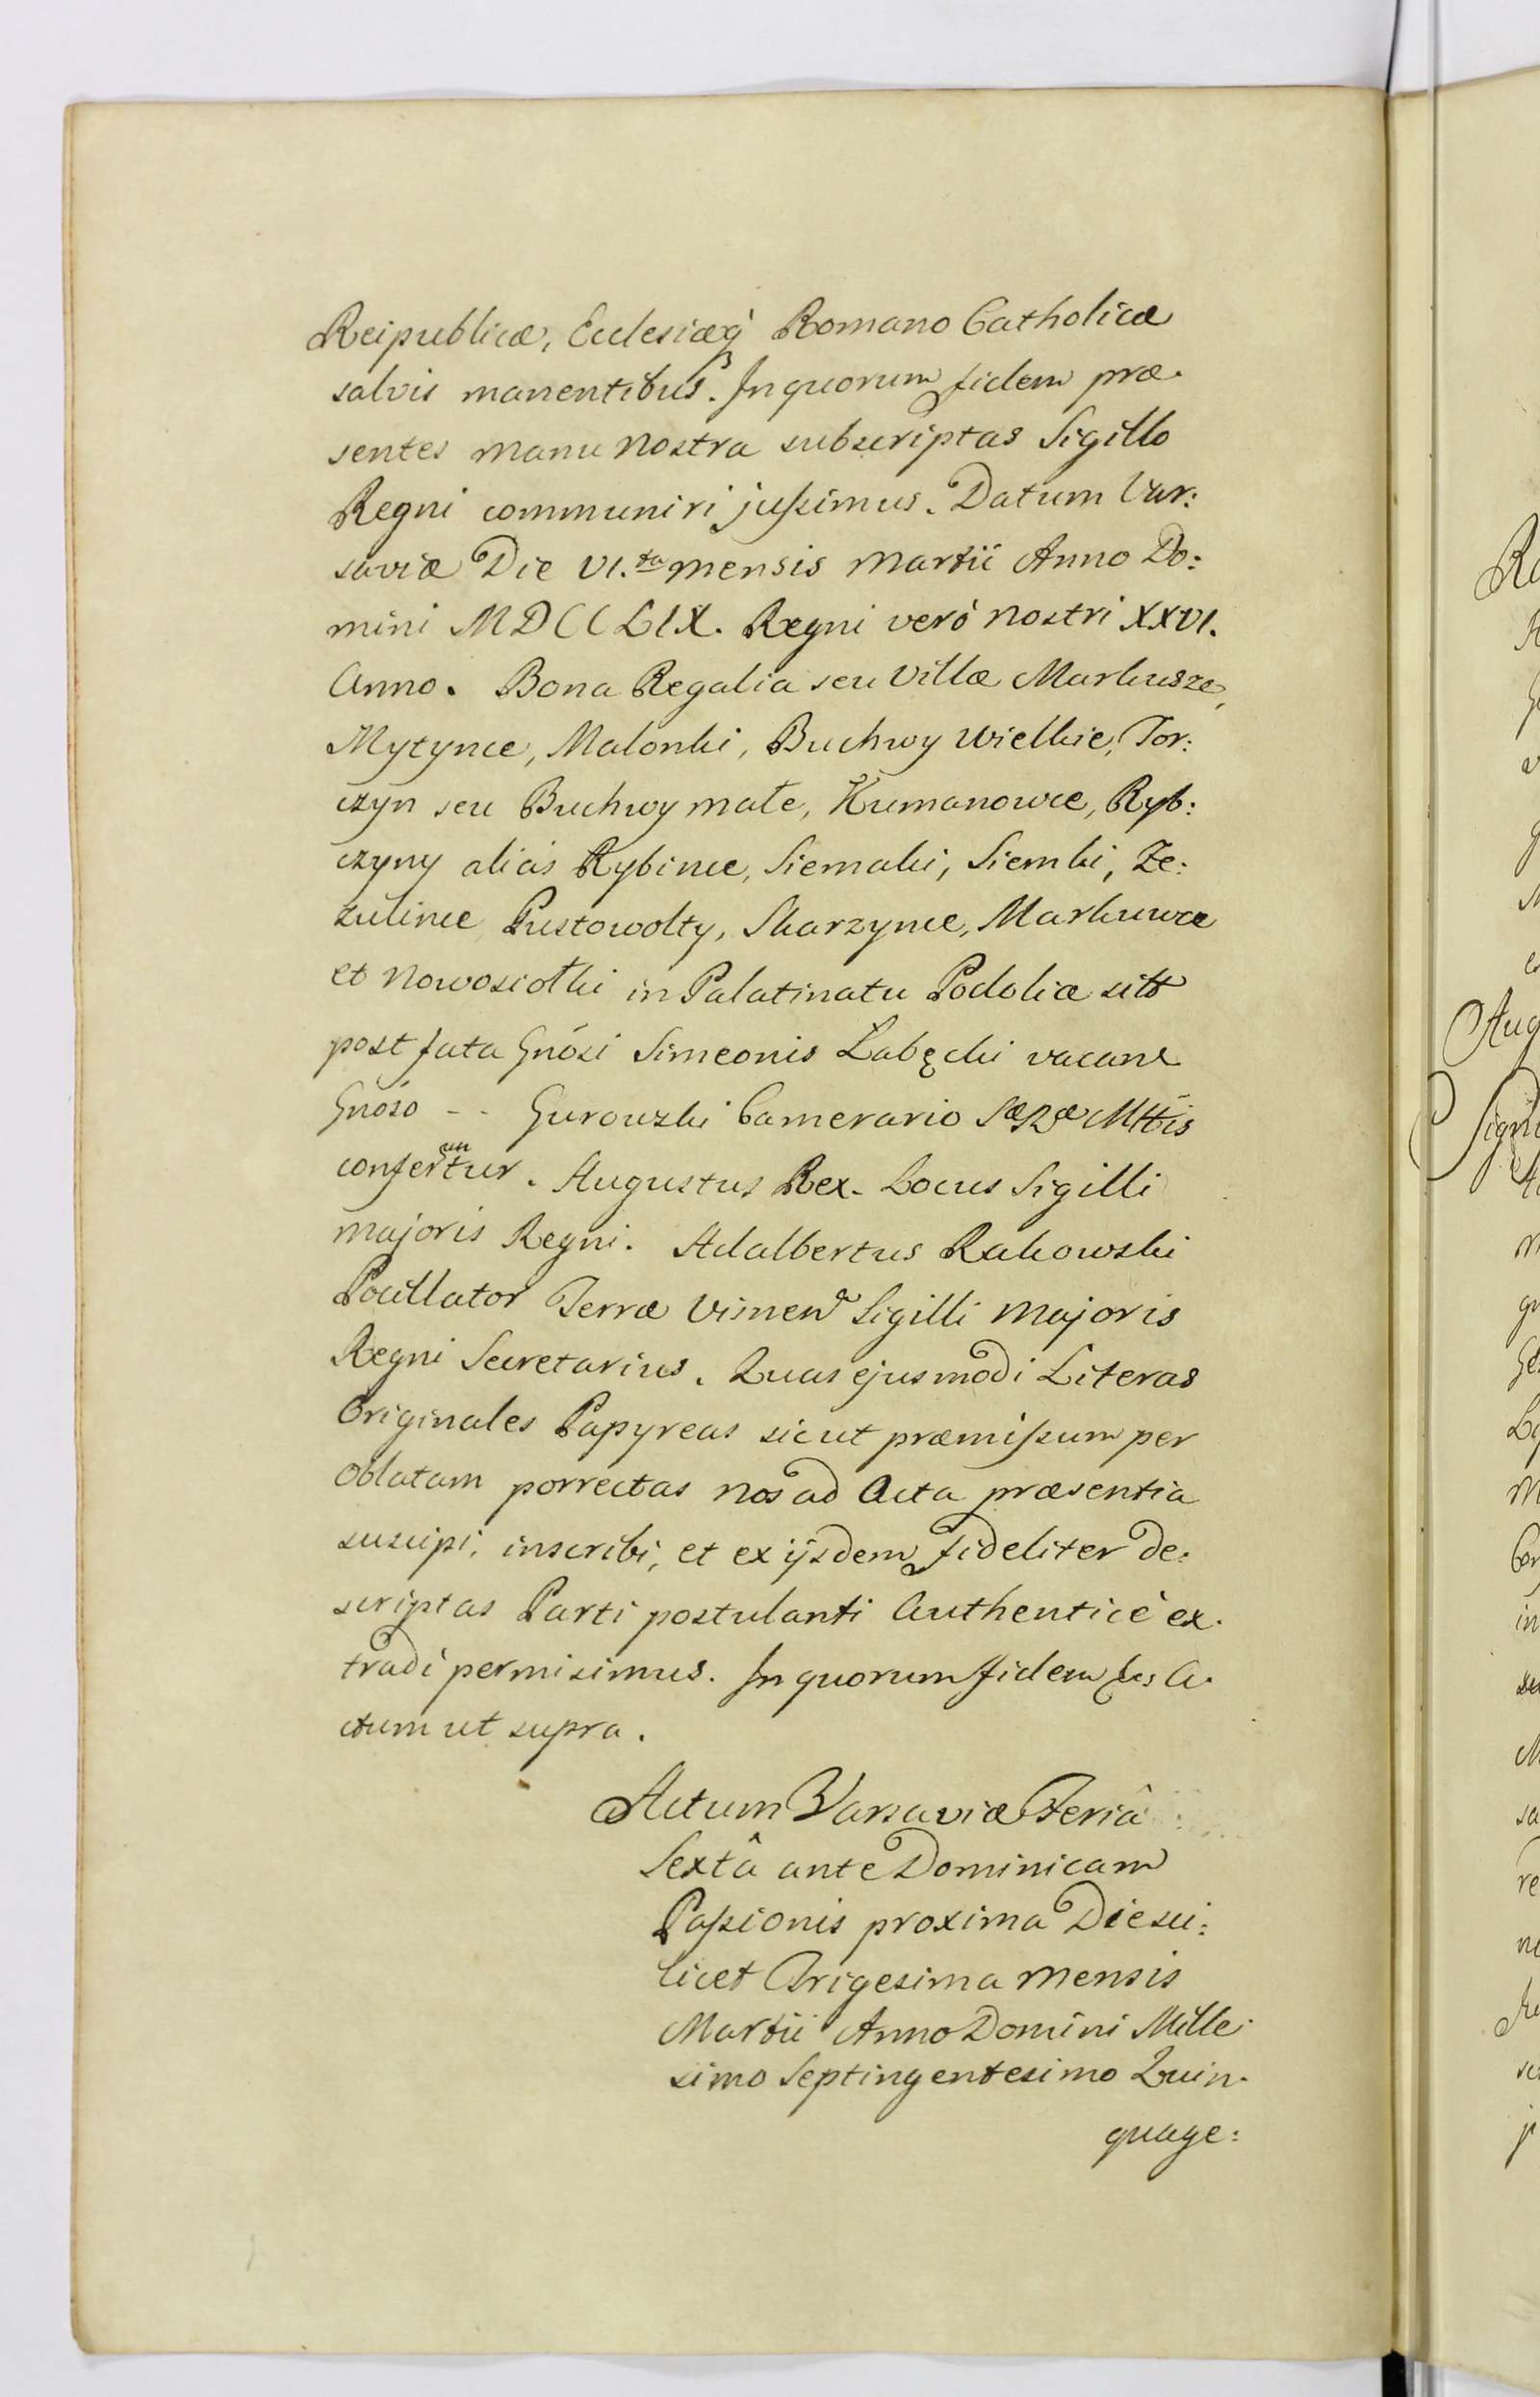 Reipublicæ, Ecclesiæq́ Romano Catholicæ
salvis manentibus. In quorum fidem præ-
sentes manu nostra subscriptas Sigillo
Regni communiri jussimus. Datum Var:
saviæ Die VI.ta mensis Martii Anno Do:
mini MDCCLIX. Regni verò nostri XXVI.
Anno. Bona Regalia seu Villæ Markusze,
Mytynce, Malonki, Buchwy Wielkie, Tor:
czyn seu Buchwy małe, Kumanowce, Ryb:
czyny aliàs Rybince, Siemaki, Siemki, Ze:
zulince Pustowolty, Skarzynce, Markuwce
et Nowosiołki in Palatinatu Podoliæ sitt
post fata Gnósi Simeonis Łabęcki vacane
Gnóso - - Gurowski Camerario SæRæ Mttis
conferuntur. Augustus Rex. Locus Sigilli
majoris Regni. Adalbertus Rakowski
Pocillator Terræ Visnen Sigilli Majoris
Regni Secretarius. Quas ejusmodi Literas
Originales Papyreas sicut præmissum per
Oblatam porrectas nos ad Acta præsentia
suscipi, inscribi, et ex ijsdem fideliter de:
scriptas Parti postulanti Authenticè ex-
tradi permisimus. In quorum fidem A-
ctum ut supra.
Actum Varsaviæ Feriâ
Sextâ ante Dominicam
Passionis proxima Die sci:
licet Trigesima mensis
Martii Anno Domini Mille-
simo Septingentesimo Quin-
quage: